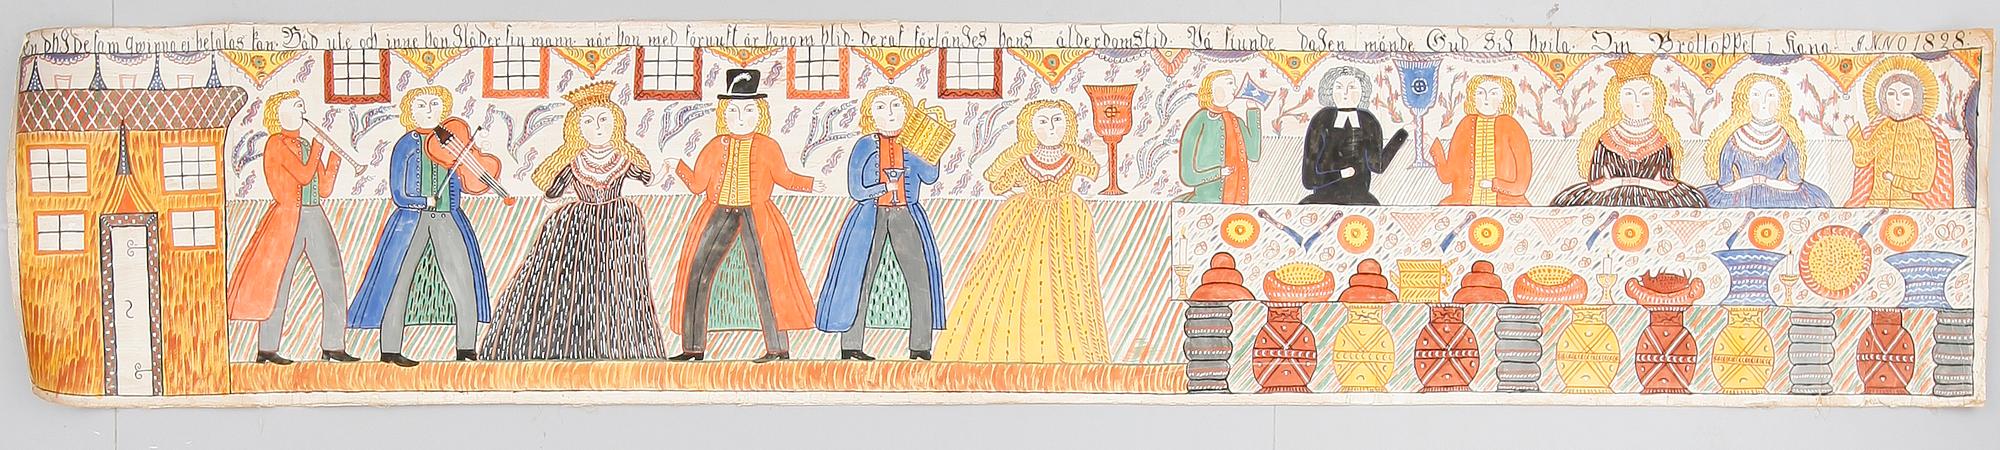 En dygdesam qwinna ei betalas kan. Båd ute och inne hon gläder sin mann. når hon med förnuft är honom blid. deraf förlänges hans ålderdomstid. På siunde dagen månde Gud sig hvila. Om Brölloppet i Kana. ANNO 1828.